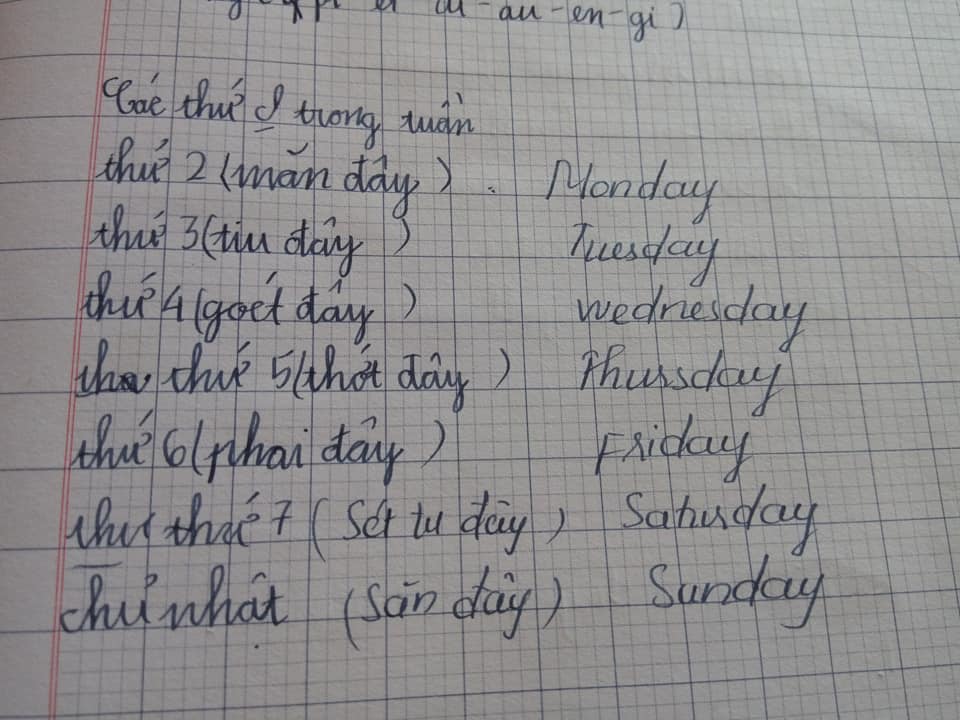 au-en-gi)
Các thứ trong tuần
thứ 2 (măn đây). Monday
thứ 3 (tiu đây) Tuesday
thứ 4 (goét đây) Wednesday
thứ 5 (thớt đây) Thursday
thứ 6 (phai đây) Friday
thứ 7 (Sét tu đây) Saturday
chủ nhật (Săn đây) Sunday